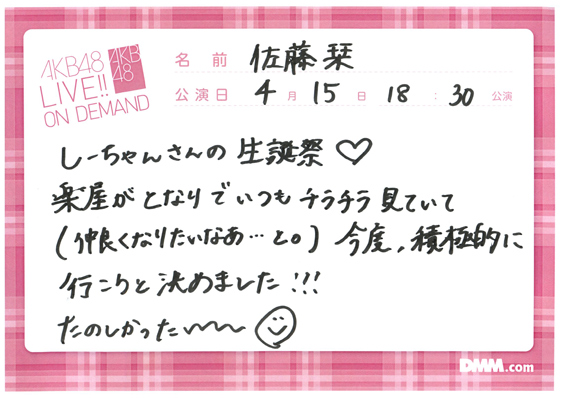 AKB48
LIVE!!
ON DEMAND
AKB
48
名前 佐藤栞
公演日 4月15日 18:30公演
しーちゃんさんの 生誕祭♡
楽屋がとなりでいつもチラチラ見ていて
(仲良くなりたいなあ…と。) 今度、積極的に
行こうと決めました!!!
たのしかった〜〜〜
DMM.com